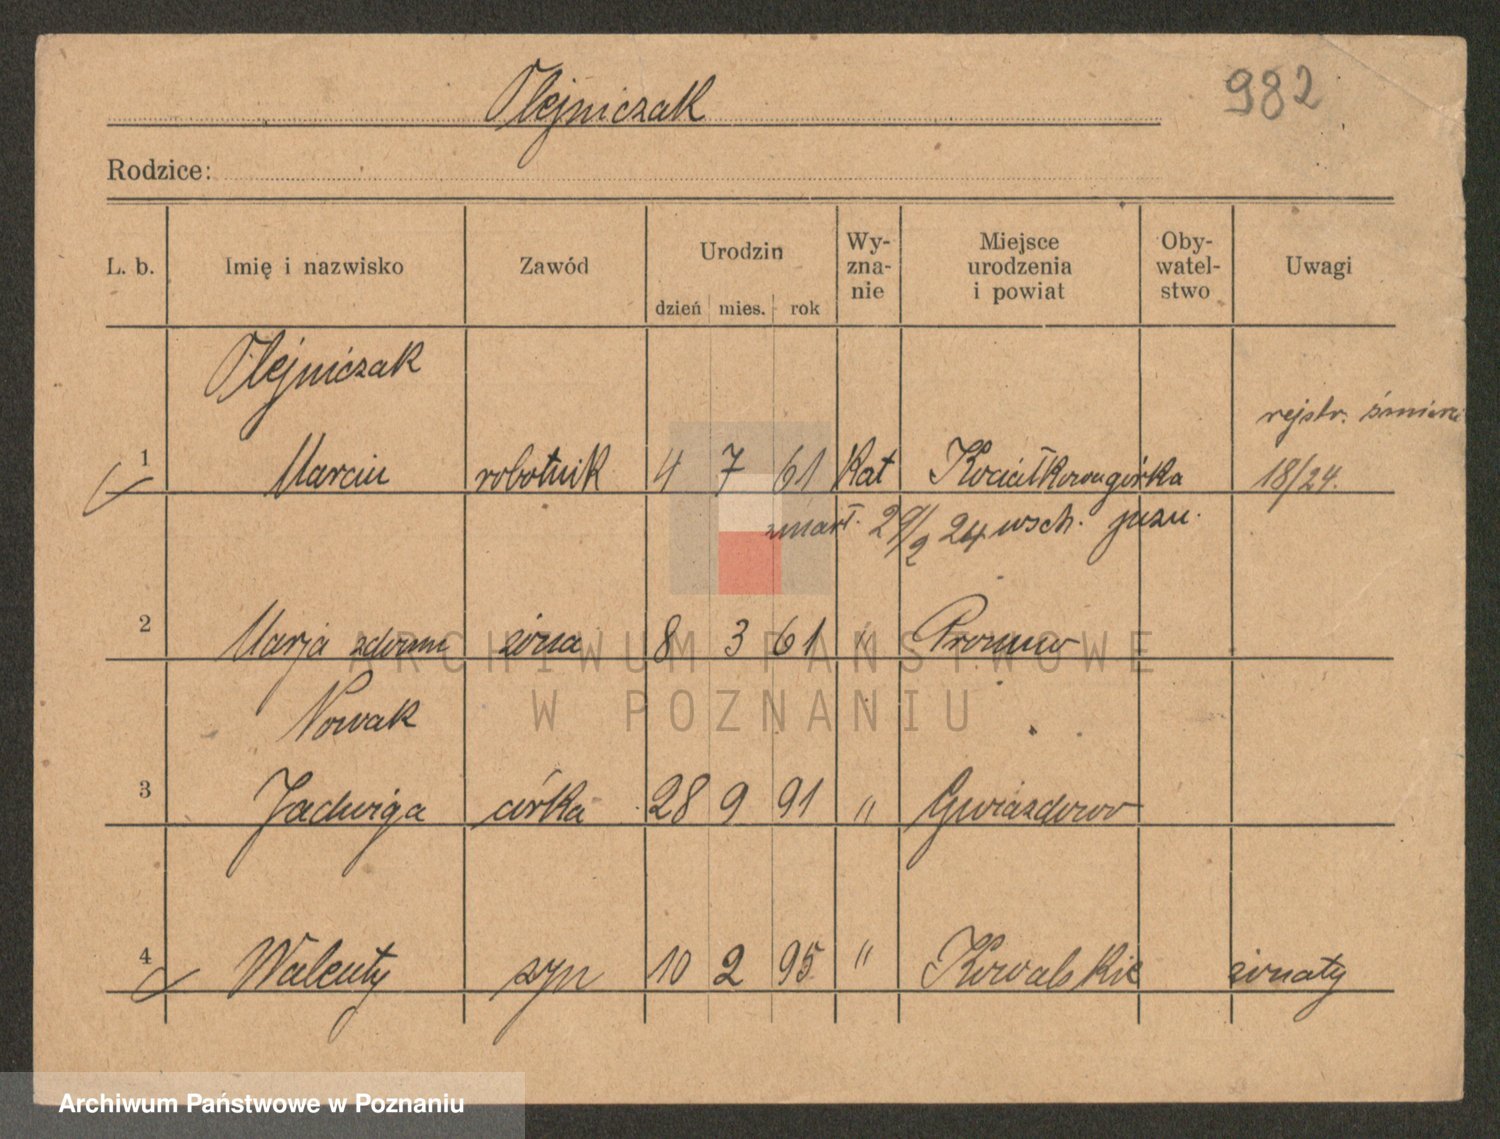 Olejniczak
982
Rodzice:
L. b. Imię i nazwisko Zawód Urodzin dzień mies. rok Wy-zna-nie Miejsce urodzenia i powiat Oby-watel-stwo Uwagi
Olejniczak
rejstr. śmierci
1 Marcin robotnik 4 7 61 Kat Kociałkowagórka 18/24.
zmarł. 29/2 24 wsch.
2 Marja zdomu żona 8 3 61 "
Nowak
3 Jadwiga córka 28 9 91 " Gwiazdowo
4 Walenty syn 10 2 95 " Kowalskie żonaty
ARCHIWUM PAŃSTWOWE
W POZNANIU
Archiwum Państwowe w Poznaniu